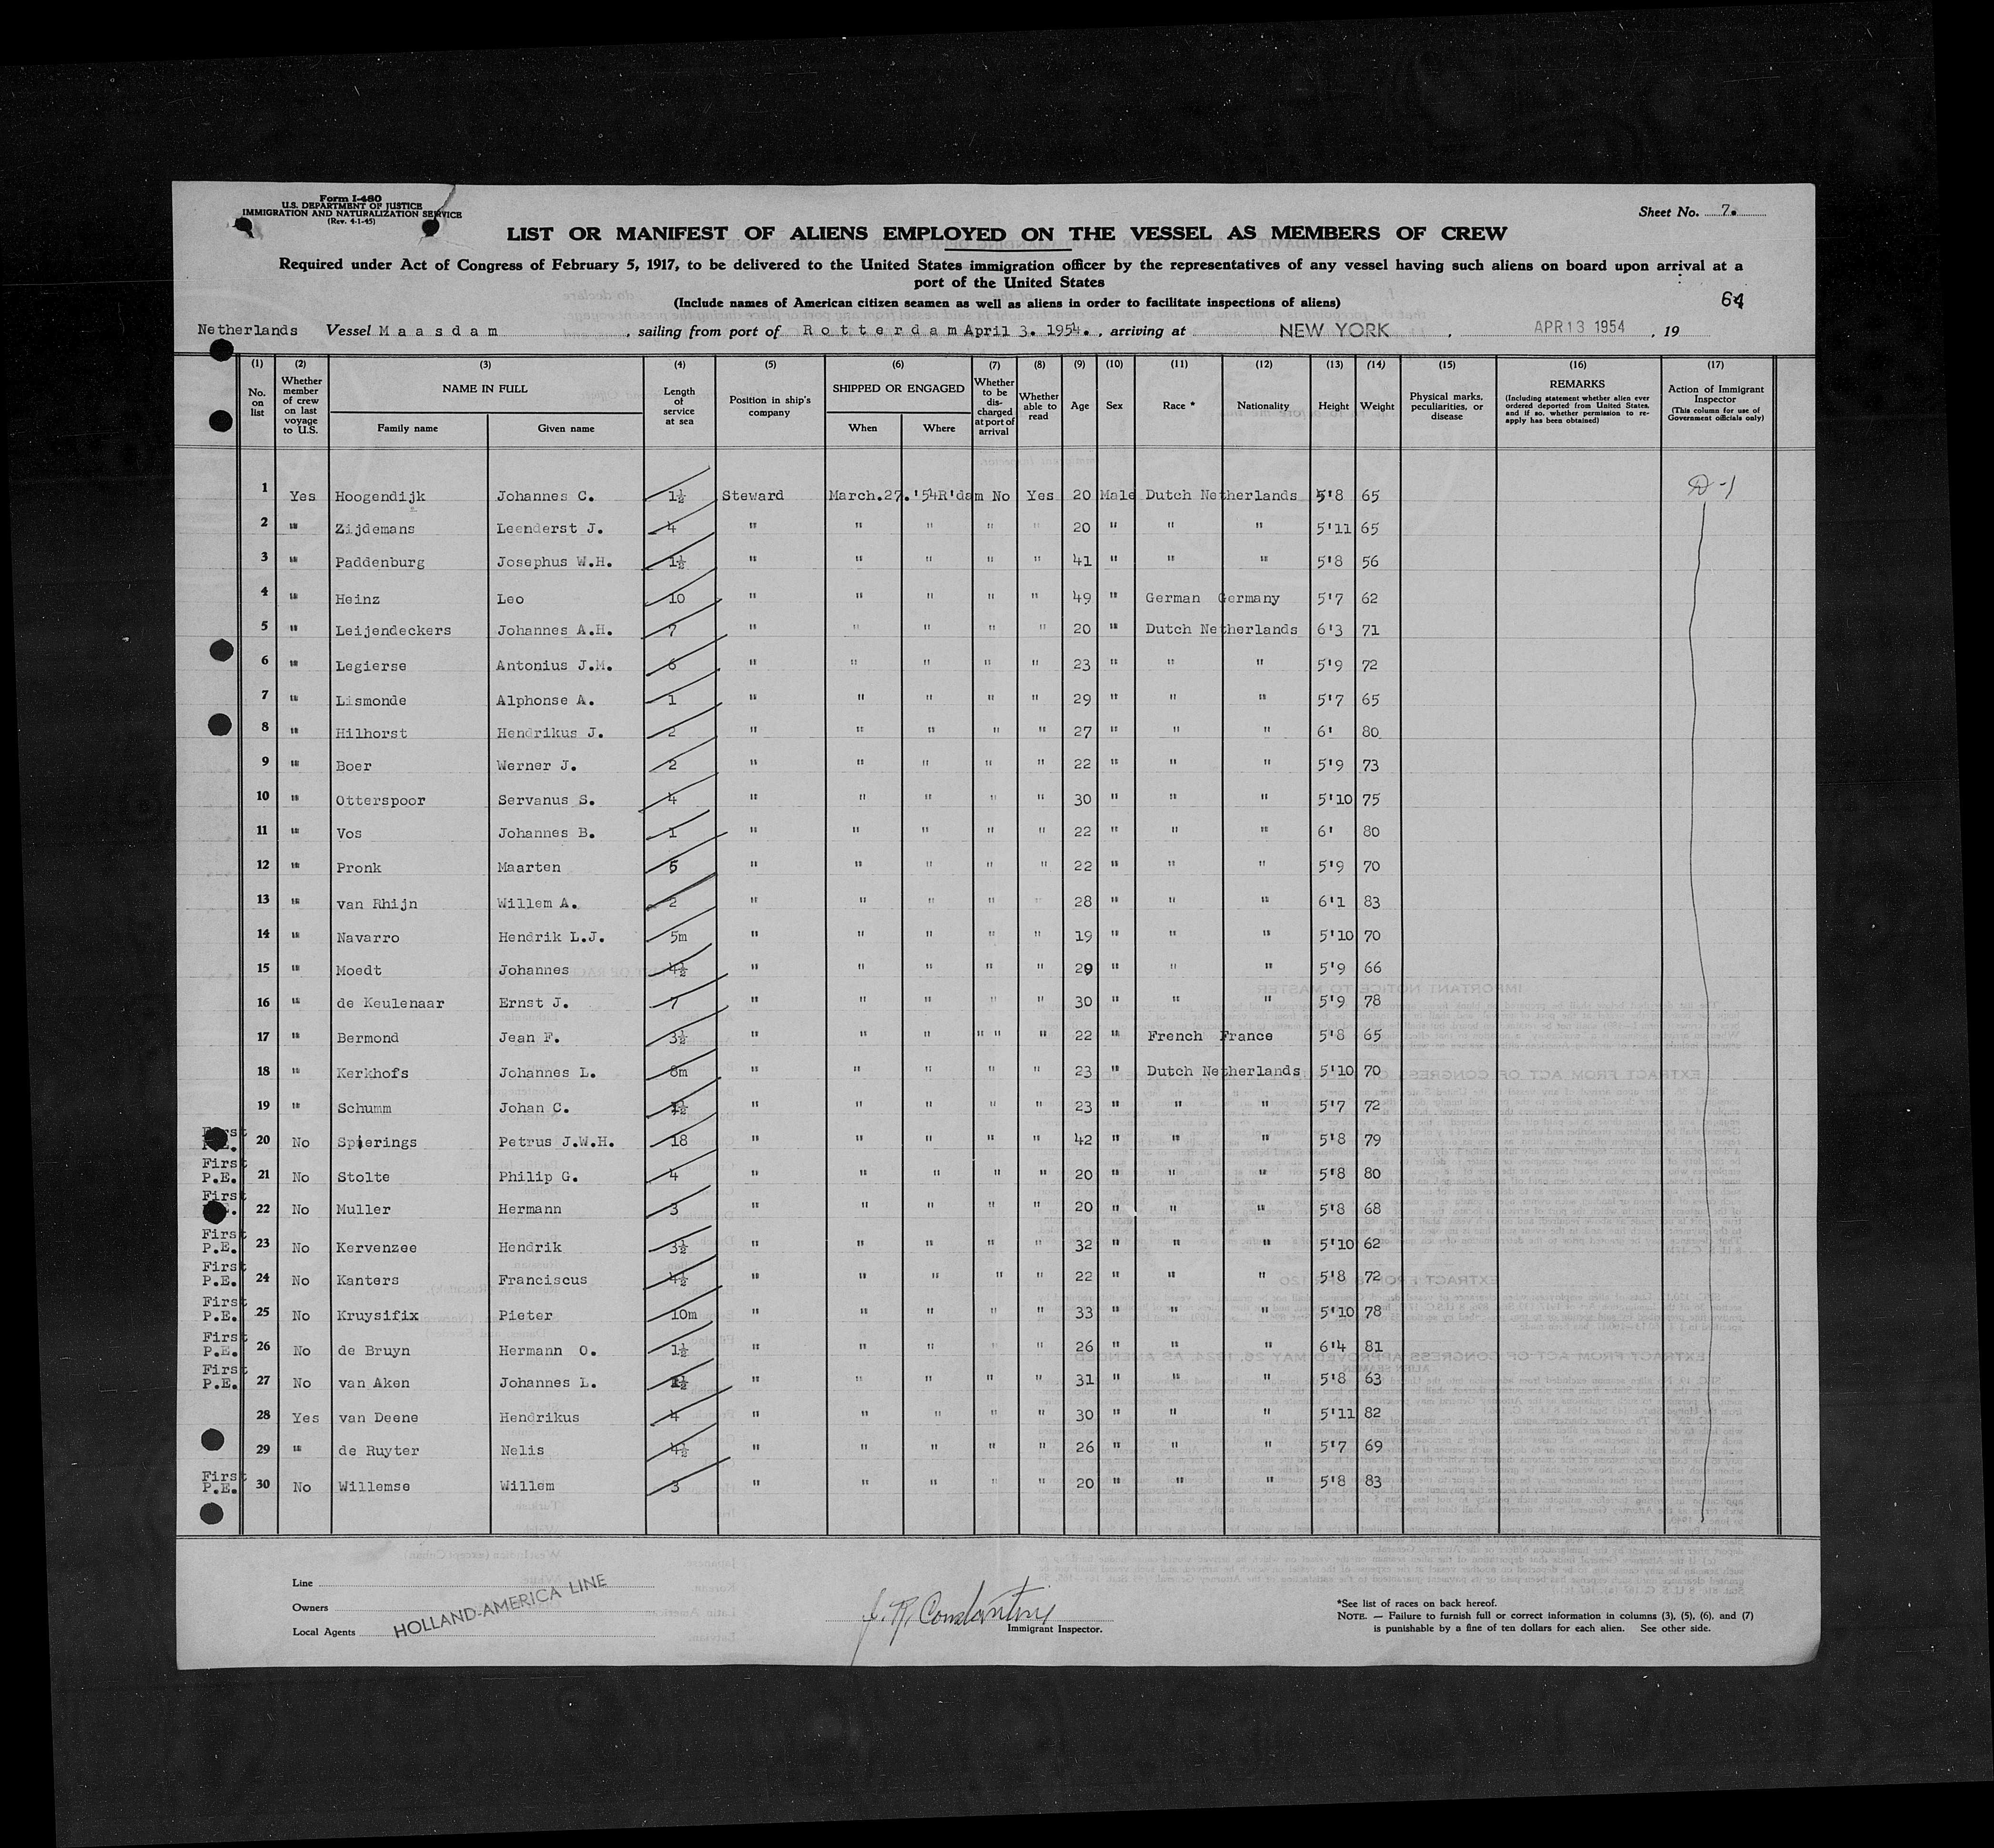 Form I-480
U.S. DEPARTMENT OF JUSTICE
IMMIGRATION AND NATURALIZATION SERVICE
(Rev. 4-1-45)
Sheet No. 7.
LIST OR MANIFEST OF ALIENS EMPLOYED ON THE VESSEL AS MEMBERS OF CREW
Required under Act of Congress of February 5, 1917, to be delivered to the United States immigration officer by the representatives of any vessel having such aliens on board upon arrival at a
port of the United States
(Include names of American citizen seamen as well as aliens in order to facilitate inspections of aliens)
64
Netherlands Vessel Maasdam, sailing from port of Rotterdam April 3. 1954., arriving at NEW YORK, APR 13 1954, 19
(1) (2) (3) (4) (5) (6) (7) (8) (9) (10) (11) (12) (13) (14) (15) (16) (17)
No. on list
Whether member of crew on last voyage to U.S.
NAME IN FULL
Family name
Given name
Length of service at sea
Position in ship's company
SHIPPED OR ENGAGED
When
Where
Whether to be discharged at port of arrival
Whether able to read
Age
Sex
Race *
Nationality
Height
Weight
Physical marks, peculiarities, or disease
REMARKS
(Including statement whether alien ever ordered deported from United States, and if so, whether permission to reapply has been obtained)
Action of Immigrant Inspector
(This column for use of Government officials only)
1 Yes Hoogendijk Johannes C. 1½ Steward March.27.'54 R'dam No Yes 20 Male Dutch Netherlands 5'8 65 D-1
2 " Zijdemans Leenderst J. 4 " " " " " 20 " " " 5'11 65
3 " Paddenburg Josephus W.H. 1½ " " " " " 41 " " " 5'8 56
4 " Heinz Leo 10 " " " " " 49 " German Germany 5'7 62
5 " Leijendeckers Johannes A.H. 7 " " " " " 20 " Dutch Netherlands 6'3 71
6 " Legierse Antonius J.M. 6 " " " " " 23 " " " 5'9 72
7 " Lismonde Alphonse A. 1 " " " " " 29 " " " 5'7 65
8 " Hilhorst Hendrikus J. 2 " " " " " 27 " " " 6' 80
9 " Boer Werner J. 2 " " " " " 22 " " " 5'9 73
10 " Otterspoor Servanus S. 4 " " " " " 30 " " " 5'10 75
11 " Vos Johannes B. 1 " " " " " 22 " " " 6' 80
12 " Pronk Maarten 5 " " " " " 22 " " " 5'9 70
13 " van Rhijn Willem A. 2 " " " " " 28 " " " 6'1 83
14 " Navarro Hendrik L.J. 5m " " " " " 19 " " " 5'10 70
15 " Moedt Johannes 4½ " " " " " 29 " " " 5'9 66
16 " de Keulenaar Ernst J. 7 " " " " " 30 " " " 5'9 78
17 " Bermond Jean F. 3½ " " " " " " 22 " French France 5'8 65
18 " Kerkhofs Johannes L. 8m " " " " " 23 " Dutch Netherlands 5'10 70
19 " Schumm Johan C. 1½ " " " " " 23 " " " 5'7 72
First P.E. 20 No Spierings Petrus J.W.H. 18 " " " " " 42 " " " 5'8 79
First P.E. 21 No Stolte Philip G. 4 " " " " " 20 " " " 5'8 80
First 22 No Muller Hermann 3 " " " " " 20 " " " 5'8 68
First P.E. 23 No Kervenzee Hendrik 3½ " " " " " 32 " " " 5'10 62
First P.E. 24 No Kanters Franciscus 4½ " " " " " 22 " " " 5'8 72
First P.E. 25 No Kruysifix Pieter 10m " " " " " 33 " " " 5'10 78
First P.E. 26 No de Bruyn Hermann O. 1½ " " " " " 26 " " " 6'4 81
First P.E. 27 No van Aken Johannes L. " " " " " 31 " " " 5'8 63
28 Yes van Deene Hendrikus 4 " " " " " 30 " " " 5'11 82
29 " de Ruyter Nelis 4½ " " " " " 26 " " " 5'7 69
First P.E. 30 No Willemse Willem 3 " " " " " 20 " " " 5'8 83
Line
Owners
Local Agents
HOLLAND-AMERICA LINE
J. R. Constantine
Immigrant Inspector.
*See list of races on back hereof.
NOTE. — Failure to furnish full or correct information in columns (3), (5), (6), and (7)
is punishable by a fine of ten dollars for each alien. See other side.